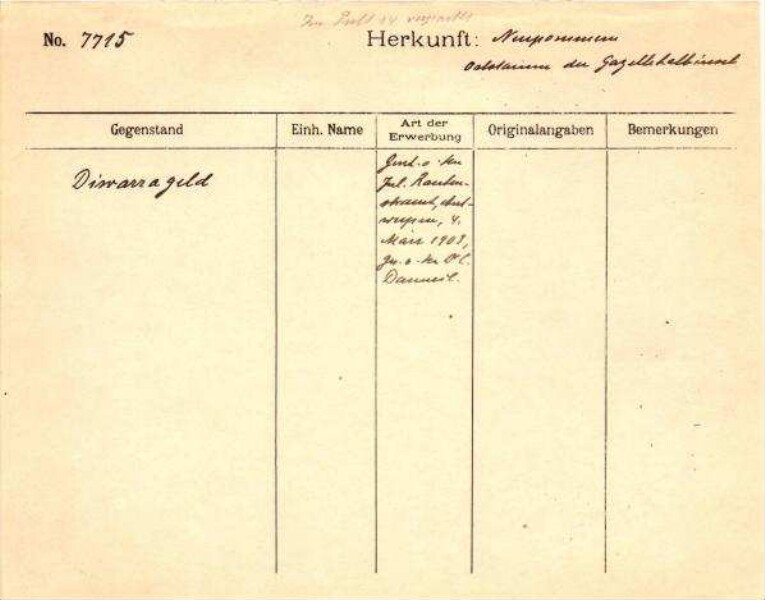 Im Pult 14
No. 7715 Herkunft: Neupommern
der Gazellehalbinsel
Gegenstand
Einh. Name
Art der Erwerbung
Originalangaben
Bemerkungen
Diwarrageld
Jul. Rauten-
strauch, Ant-
werpen, 4.
März 1903,
Danneil.